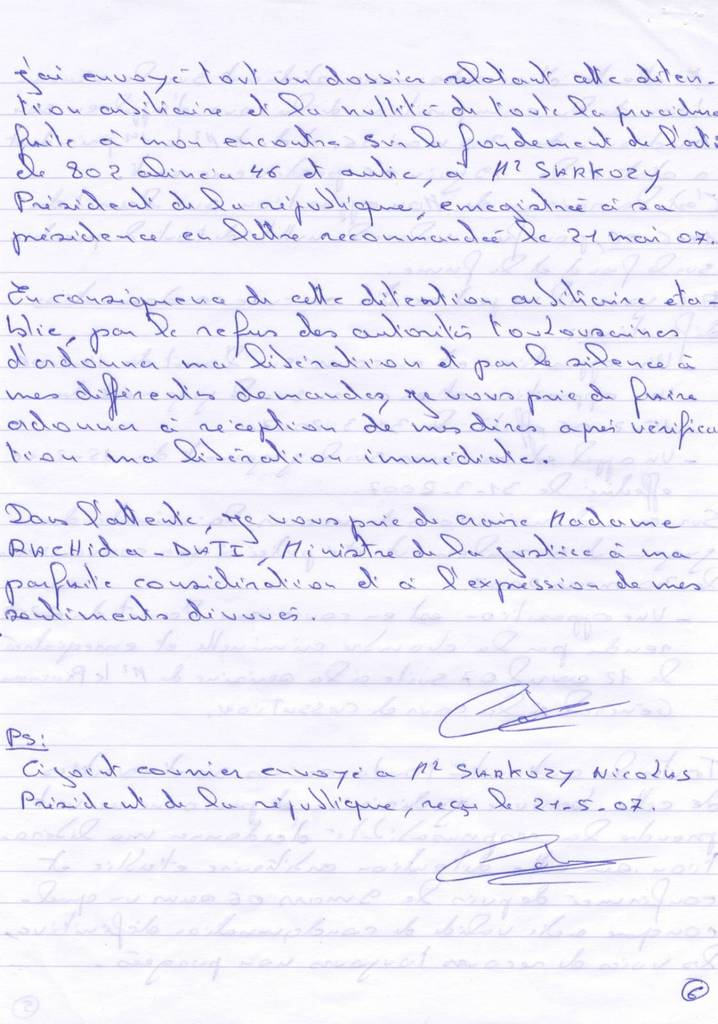 J'ai envoyé tout un dossier relatant cette déten-
tion arbitraire et la nullité de toute la procédure
faite à mon encontre sur le fondement de l'arti
cle 802 alinéa 46 et autre, à Mr SARKOZY
Président de la république, enregistrée à sa
présidence en lettre recommandée le 21 mai 07.
En conséquence de cette détention arbitraire éta-
blie, par le refus des autorités toulousaines
d'ordonner ma libération et par le silence à
mes différentes demandes, je vous prie de faire
ordonner à réception de mes dires après vérifica
tion ma libération immédiate.
Dans l'attente, je vous prie de croire Madame
RACHIDA-DATI, Ministre de la justice à ma
parfaite considération et à l'expression de mes
sentiments dévoués.
PS:
Ci joint courrier envoyé à Mr SARKOZY NICOLAS
Président de la république, reçu le 21-5-07.
6